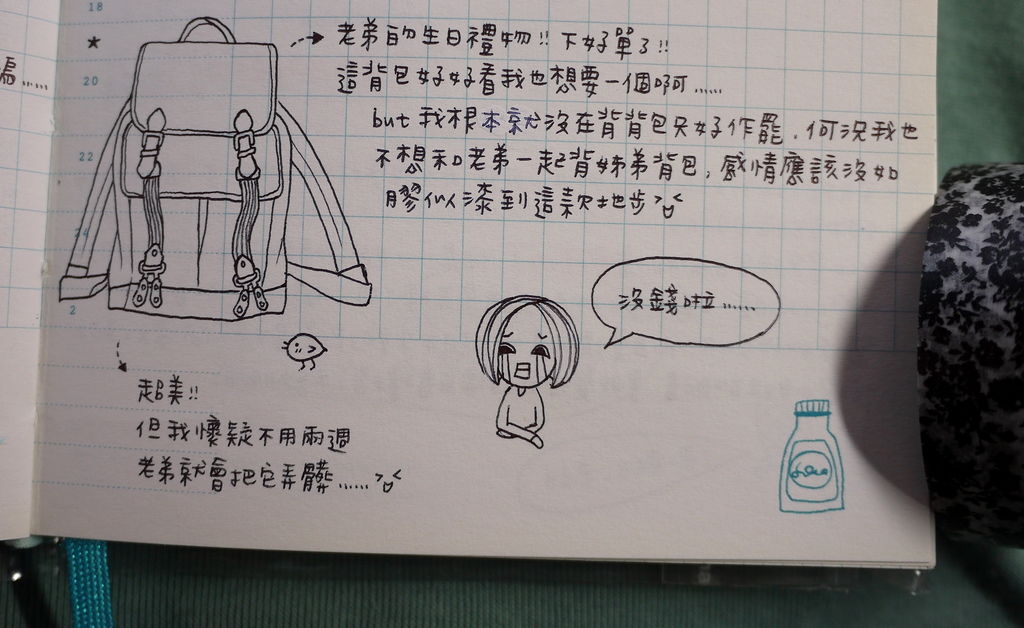 18
★
20
22
24
2
老弟的生日禮物!! 下好單了!!
這背包好好看我也想要一個啊……
but 我根本就沒在背背包只好作罷，何況我也
不想和老弟一起背姊弟背包，感情應該沒如
膠似漆到這款地步
沒錢啦……
超美!!
但我懷疑不用兩週
老弟就會把它弄髒……